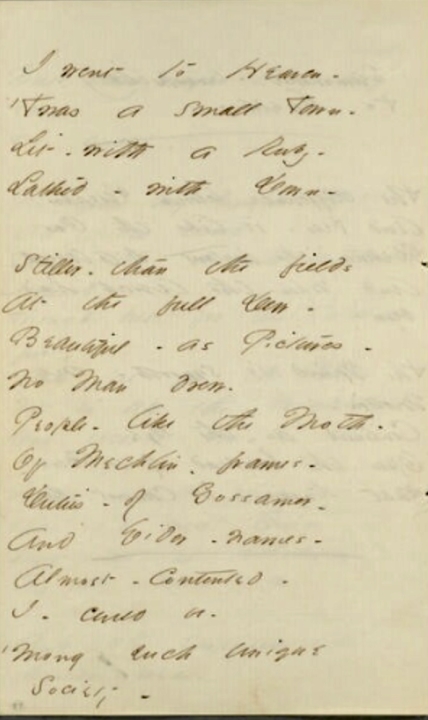 I went to Heaven -
'Twas a small Town -
Lit - with a Ruby -
Lathed - with Down -

Stiller - than the fields
At the full Dew -
Beautiful - as Pictures -
No Man drew.
People - like the Moth -
Of Mechlin - frames -
Duties - of Gossamer -
And Eider - names -
Almost - Contented -
I - could be -
'Mong such unique
Society -